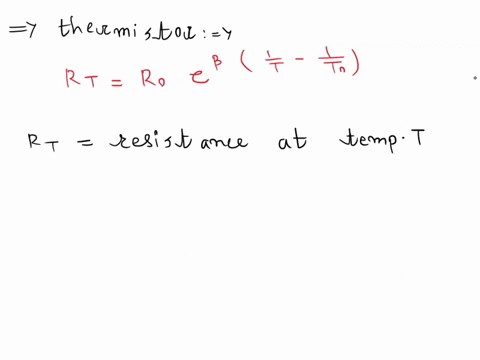 => thermistor :=>
R_T = R_0 e^{β (1/T - 1/T_0)}
R_T = resistance at temp. T